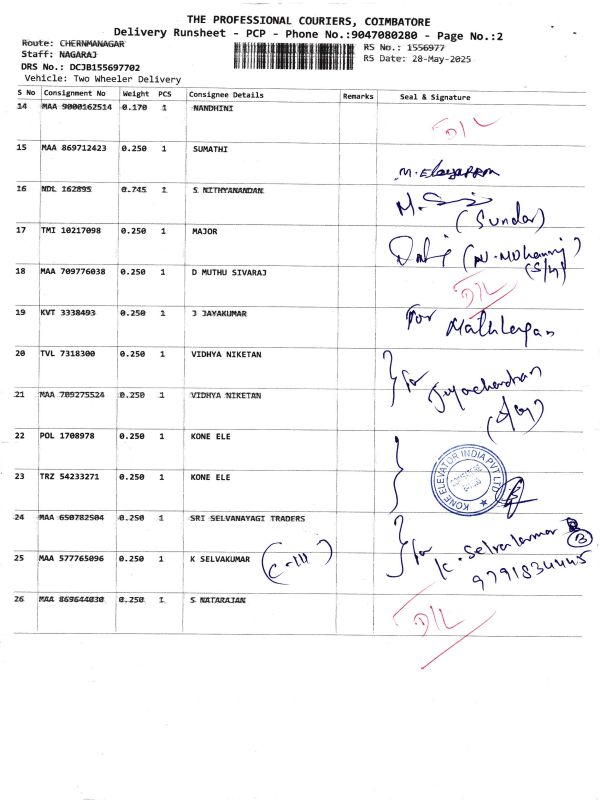 THE PROFESSIONAL COURIERS, COIMBATORE
Delivery Runsheet - PCP - Phone No.:9047080280 - Page No.:2
Route: CHERNMANAGAR
RS No.: 1556977
Staff: NAGARAJ
RS Date: 28-May-2025
DRS No.: DCJB155697702
Vehicle: Two Wheeler Delivery
S No Consignment No Weight PCS Consignee Details Remarks Seal & Signature
14 MAA 9000162514 0.170 1 NANDHINI D/L
15 MAA 869712423 0.250 1 SUMATHI
16 NDL 162895 0.745 1 S NITHYANANDAN (Sundar)
17 TMI 10217098 0.250 1 MAJOR
18 MAA 709776038 0.250 1 D MUTHU SIVARAJ D/L
19 KVT 3338493 0.250 1 J JAYAKUMAR For
20 TVL 7318300 0.250 1 VIDHYA NIKETAN for
21 MAA 709275524 0.250 1 VIDHYA NIKETAN
22 POL 1708978 0.250 1 KONE ELE
KONE ELEVATOR INDIA PVT LTD
23 TRZ 54233271 0.250 1 KONE ELE
24 MAA 650782504 0.250 1 SRI SELVANAYAGI TRADERS
25 MAA 577765096 0.250 1 K SELVAKUMAR for K. Selvakumar
9791834445
26 MAA 869644030 0.250 1 S NATARAJAN D/L